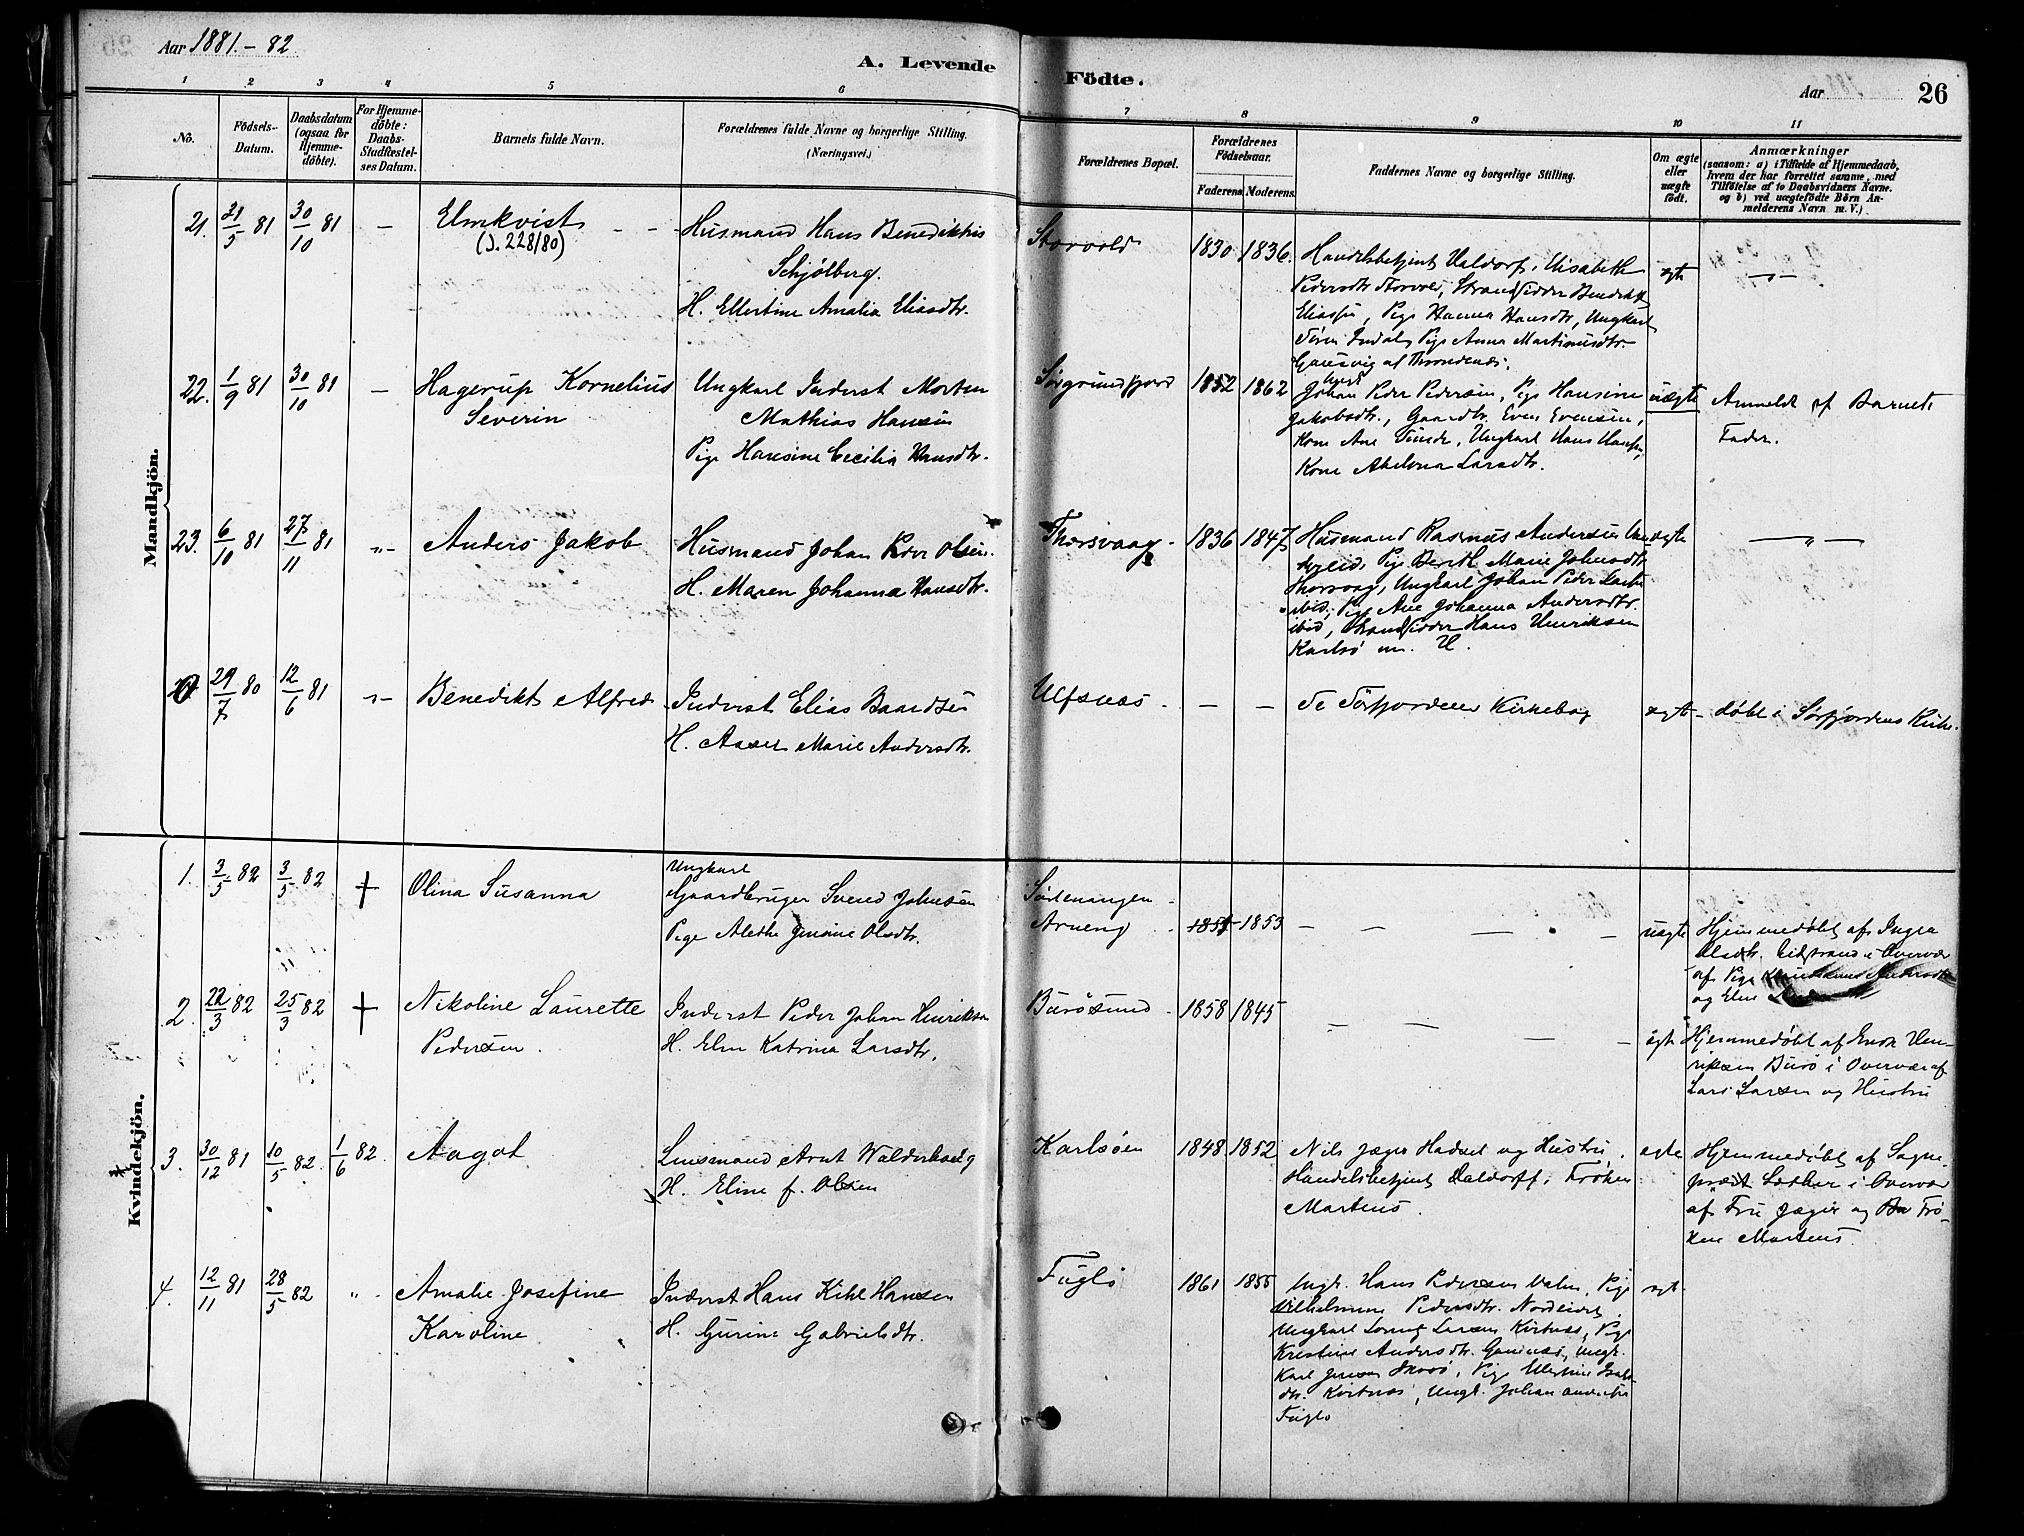 Aar 1881.-82
A. Levende
Födte.
Aar
26
1 2 3 4 5 6 7 8 9 10 11
No.
Födsels-
Datum.
Daabsdatum
(ogsaa for
Hjemme-
döbte).
For Hjemme-
döbte:
Daabs-
Stadfæstel-
ses Datum.
Barnets fulde Navn.
Forældrenes fulde Navne og borgerlige Stilling.
(Næringsvei.)
Forældrenes Bopæl.
Forældrenes
Födselsaar.
Faderens Moderens.
Faddernes Navne og borgerlige Stilling.
Om ægte
eller
uægte
födt.
Anmærkninger
(saasom: a) i Tilfælde af Hjemmedaab,
hvem der har forrettet samme, med
Tilföielse af to Daabsvidners Navne.
og b) ved uægtefödte Börn An-
melderens Navn m. V.)
Mandkjön.
21. 21/5 81 30/10 81 - Elmkvist - -
(J. 228/80)
Husmand Hans Benediktus
Schjölberg.
H. Ellertine Amalia Eliasdtr.
Storvold 1830 1836.
Handelsbetjent Valdorf, Elisabeth
Pedersdtr Storvold, Strandsidder Benedikt
Eliassen, Pige Hanna Hansdtr, Ungkarl
Sören Indal, Pige Anna Martinusdtr.
Gausvig af Throndenæs.
ægte
22. 1/9 81 30/10 81 - Hagerup Kornelius
Severin
Ungkarl Inderst Morten
Mathias Hansen
Pige Hansine Cecilia Hansdtr.
Sörgrundfjord 1852 1862
Johan Peder Pedersen, Pige Hansine
Jakobsdtr., Gaardbr. Even Evensen,
Kone Ane, Ungkarl Hans Hansen,
Kone Abelona Larsdtr.
uægte
Anmeldt af Barnets
Fader.
23. 6/10 81 27/11 81 -"- Anders Jakob
Husmand Johan Peder Olsen.
H. Maren Johanna Hansdtr.
Thorsvaag 1836 1847
Husmand Rasmus Andersen
Pige Berith Marie Johnsdtr
Thorsvaag, Ungkarl Johan Peder
ibid, Pige Ane Johanna Andersdtr.
ibid, Strandsidder Hans Henriksen
Karlsö
ægte
-"-
29/7 80 12/6 81 -"- Benedikt Alfred
Inderst Elias Baardsen
H. Marie Andersdtr.
Ulfsnæs - - -
Se Sörfjordens Kirkebog
ægte
döbt i Sörfjordens Kirke.
Kvindekjön.
1. 3/5 82 3/5 82 † Olina Susanna
Ungkarl
Gaardbruger Svend Johnsen
Pige Alethe Jensine Olsdtr.
Sörlenangen
Arneng 1853
- - - -
uægte
Hjemmedöbt af Inger
Olsdtr. i Overvær
af Pige
og Eline
2. 22/3 82 25/3 82 † Nikoline Laurette
Pedersen.
Inderst Peder Johan Henriksen
H. Elen Katrina Larsdtr.
Burösund 1858 1845
- - - -
ægte
Hjemmedöbt af Enok Hen-
riksen Burö i Overvær af
Lars Larsen og Hustru
3. 30/12 81 10/5 82. 1/6 82. Aagot
Lensmand Arnt Walderhaug
H. Eline f. Olsen
Karlsöen 1848 1852
Nils Jæger Hadsel og Hustru,
Handelsbetjent Valdorff, Fröken
Martens.
ægte
Hjemmedöbt af Sogne-
præst i Overvær
af Fru Jæger og Frö-
ken Martens.
4. 12/11 81 28/5 82 " Amalie Josefine
Karoline
Inderst Hans Kihl Hansen
H. Gurine Gabrielsdtr.
Fuglö 1861 1855
Ungk. Hans Pedersen, Pige
Vilhelmine Pedersdtr. Nordeidet,
Ungkarl Larsen Kirknæs, Pige
Kristine Andersdtr. Ungk.
Karl Jensen Skorö, Pige
dtr. Kirknæs, Ungk. Johan
Fuglö
ægt.